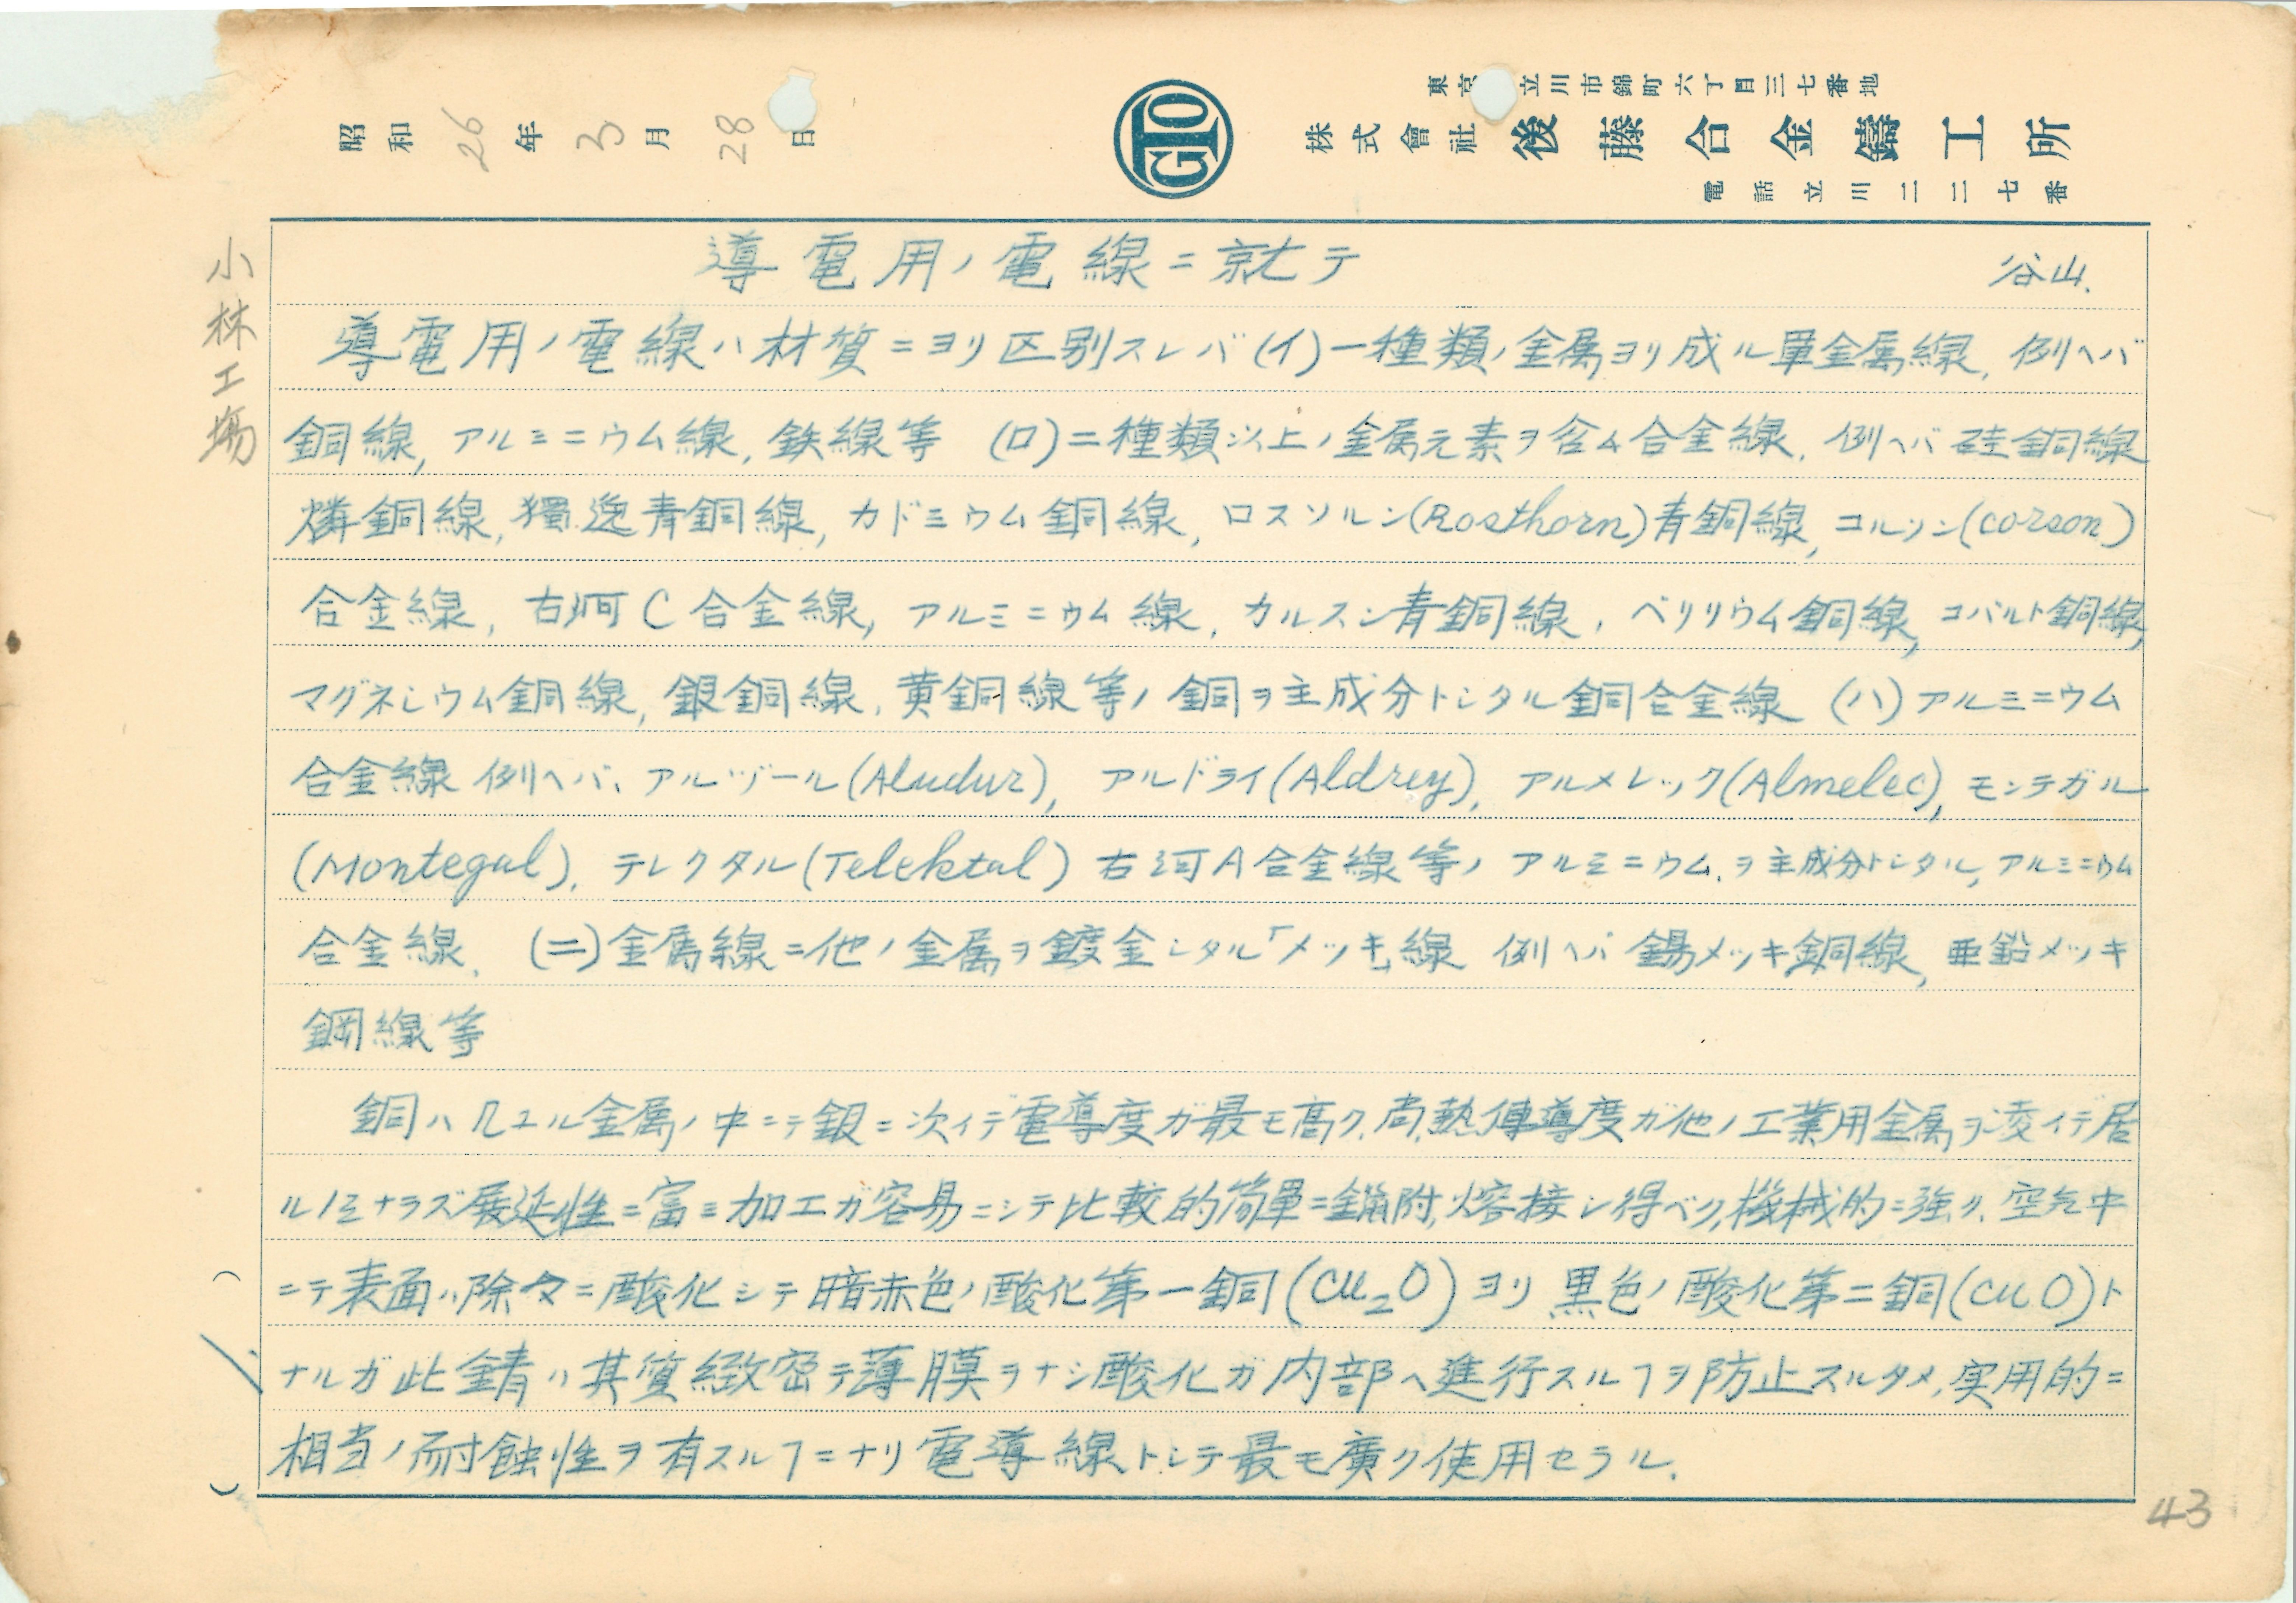 東京 立川市錦町六丁目三七番地
株式會社 後藤合金鑄工所
電話立川二二七番
GTO
昭和26年3月28日
小林工場
導電用ノ電線ニ就テ 谷山.
導電用ノ電線ハ材質ニヨリ区別スレバ(イ)一種類ノ金属ヨリ成ル單金属線, 例ヘバ
銅線, アルミニウム線, 鉄線等 (ロ)二種類以上ノ金属元素ヲ含ム合金線, 例ヘバ硅銅線
燐銅線, 獨逸青銅線, カドミウム銅線, ロスソルン(Rosthorn)青銅線, コルソン(corson)
合金線, 古河C合金線, アルミニウム線, カルスン青銅線, ベリリウム銅線, コバルト銅線,
マグネシウム銅線, 銀銅線, 黄銅線等ノ銅ヲ主成分トシタル銅合金線 (ハ)アルミニウム
合金線 例ヘバ, アルヅール(Aludur), アルドライ(Aldrey), アルメレック(Almelec), モンテガル
(Montegal), テレクタル(Telektal) 古河A合金線等ノアルミニウム.ヲ主成分トシタル, アルミニウム
合金線, (ニ)金属線ニ他ノ金属ヲ鍍金シタル「メッキ」線 例ヘバ錫メッキ銅線, 亜鉛メッキ
鋼線等
銅ハ凡ユル金属ノ中ニテ銀ニ次イデ電導度ガ最モ高ク, 尚,熱傳導度ガ他ノ工業用金属ヲ凌イデ居
ルノミナラズ展延性ニ富ミ加工ガ容易ニシテ比較的簡單ニ鑞附,熔接シ得ベク,機械的ニ強ク, 空気中
ニテ表面ハ除々ニ酸化シテ暗赤色ノ酸化第一銅(Cu₂O)ヨリ黒色ノ酸化第二銅(CuO)ト
ナルガ此錆ハ其質緻密デ薄膜ヲナシ酸化ガ内部ヘ進行スルヿヲ防止スルタメ, 実用的ニ
相当ノ耐蝕性ヲ有スルヿニナリ電導線トシテ最モ廣ク使用セラル.
( 1. )
43